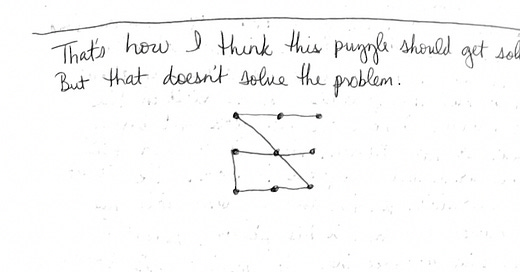 That's how I think this puzzle should get
But that doesn't solve the problem.